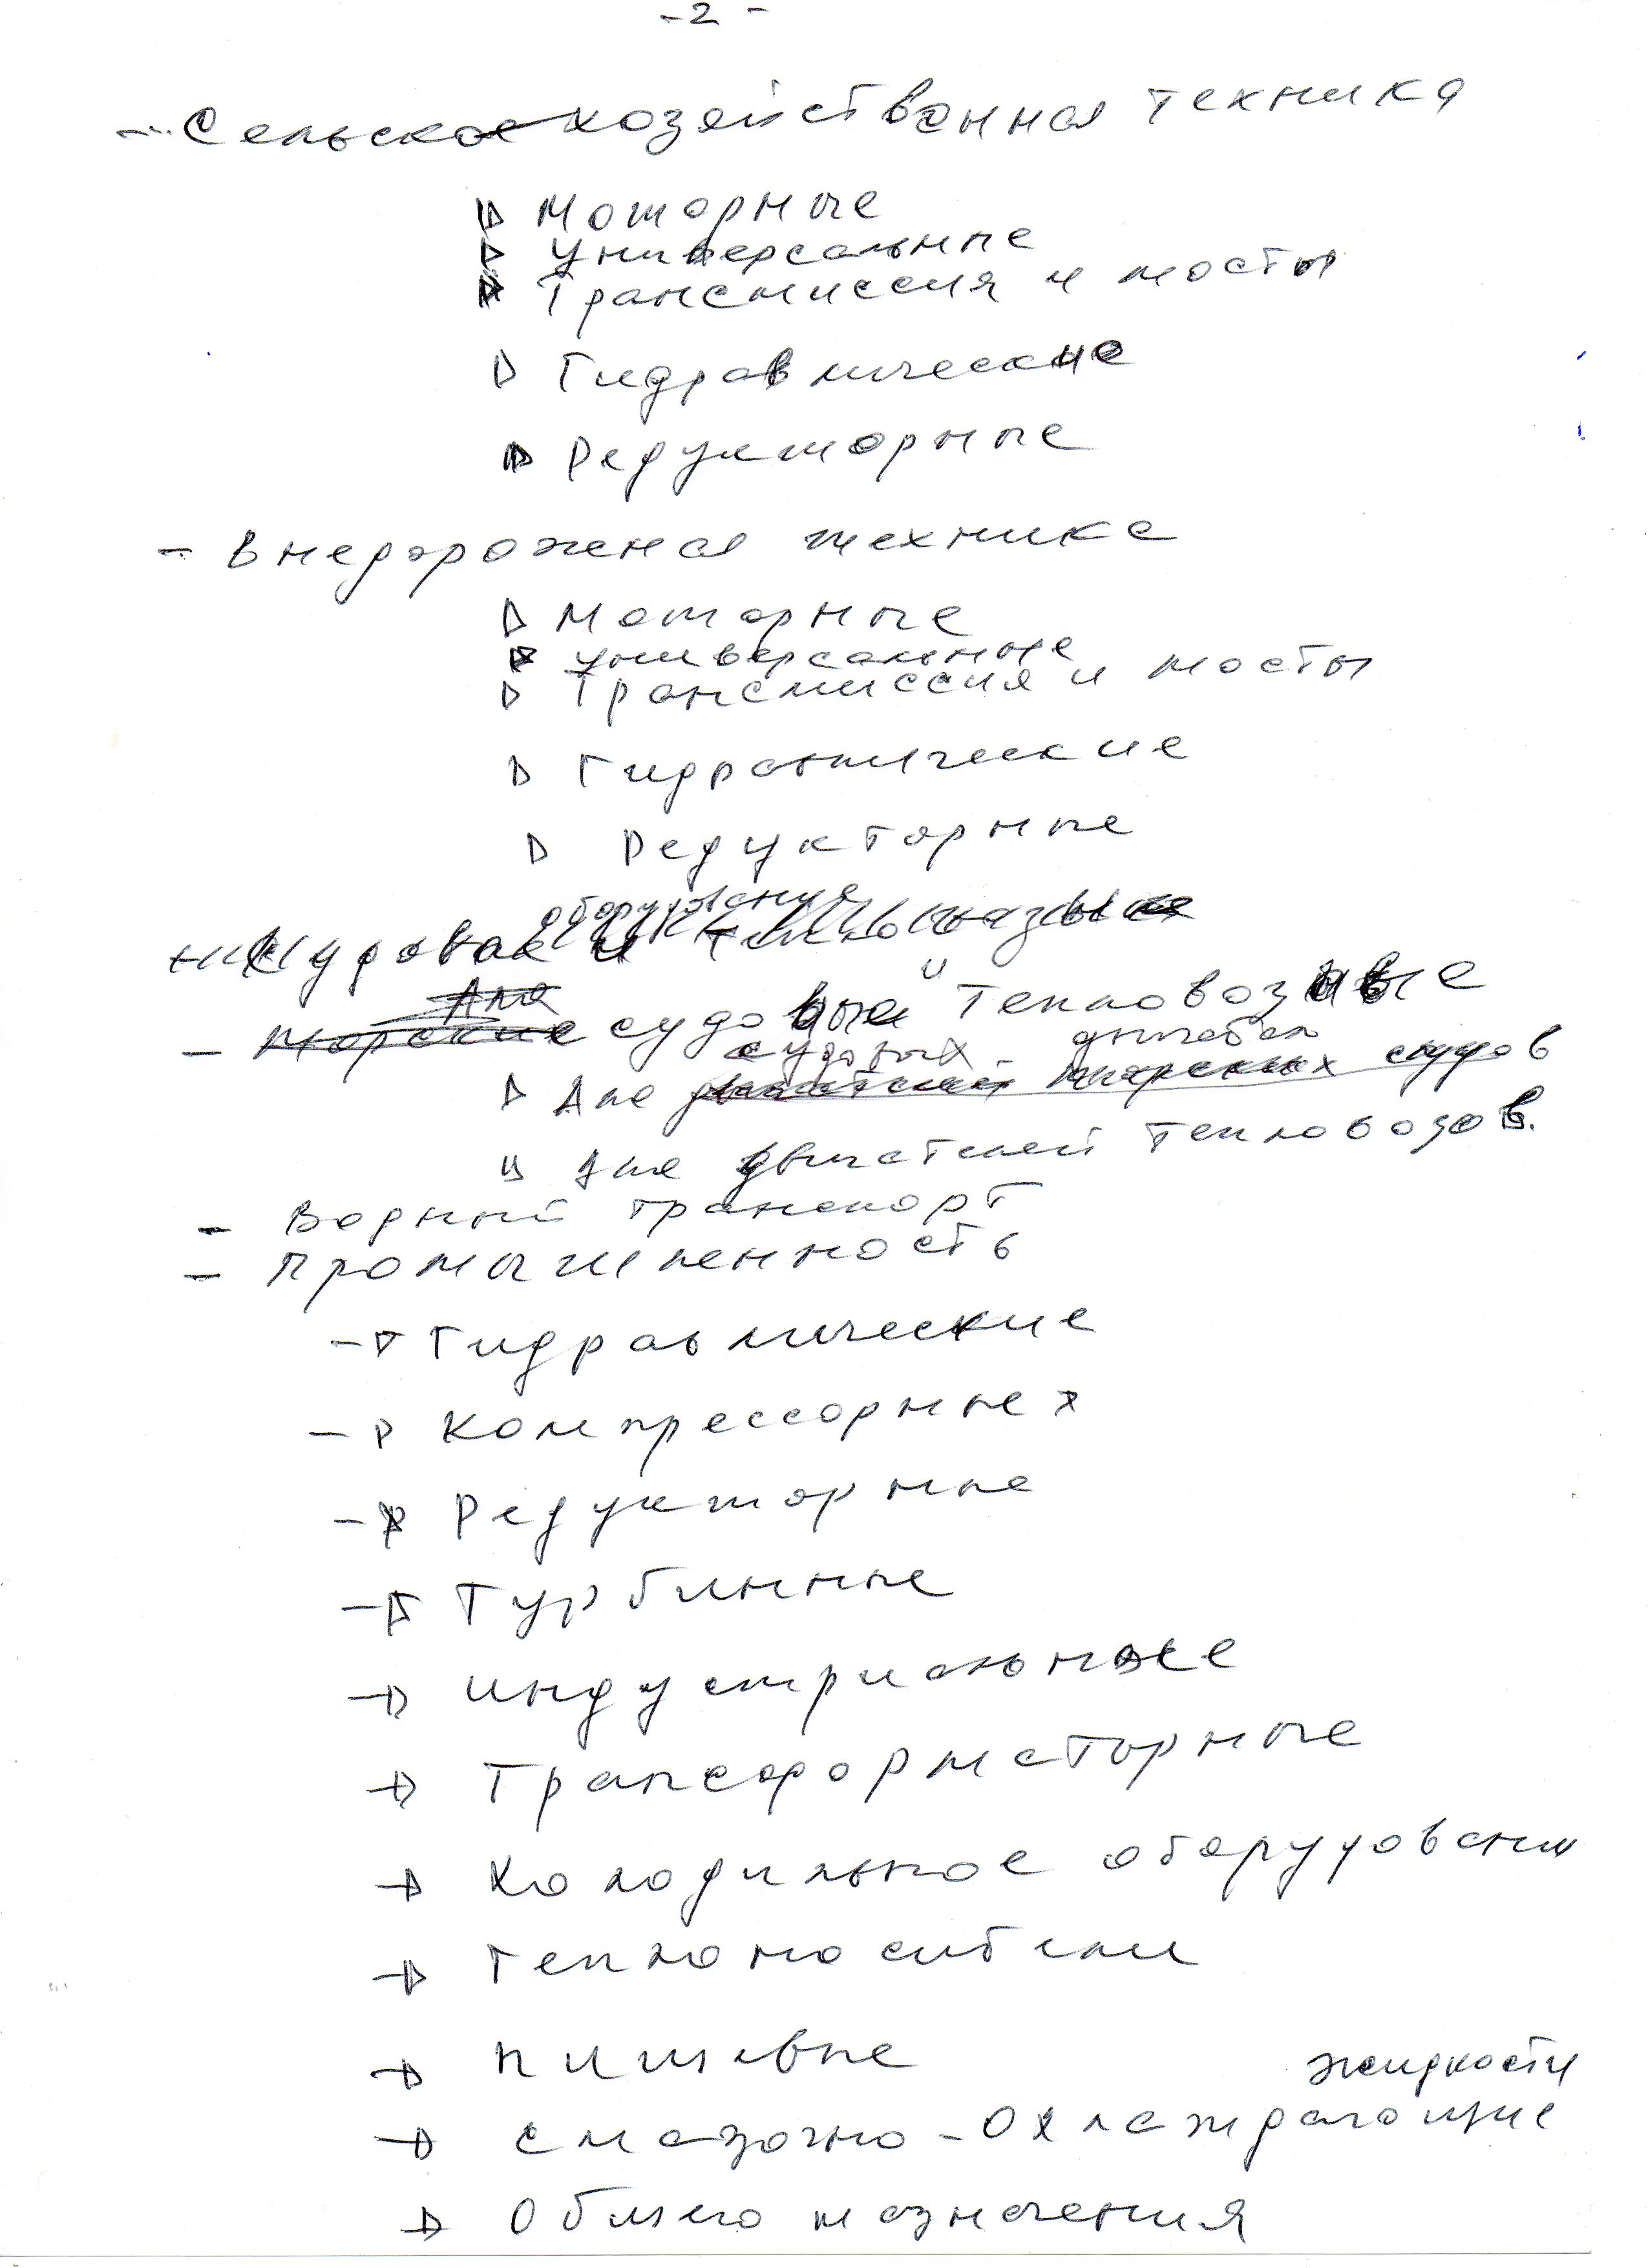 - 2 -
- Сельскохозяйственная техника
Моторные
Универсальные
Трансмиссия и мосты
Гидравлические
Редукторные
- Внедорожная техника
Моторные
Универсальные
Трансмиссия и мосты
Гидравлические
Редукторные
оборудования
Судовая и
Для и
- Морские судовые тепловозные
судовых двигател
Для морских судов
для двигателей тепловозов.
- Водный транспорт
- Промышленность
- Гидравлические
- Компрессорные
- Редукторные
- Турбинные
- Индустриальные
- Трансформаторные
- Холодильное оборудовани
- Теплоносители
- Пищевые
жидкости
- Смазочно - Охлаждающие
- Общего назначения